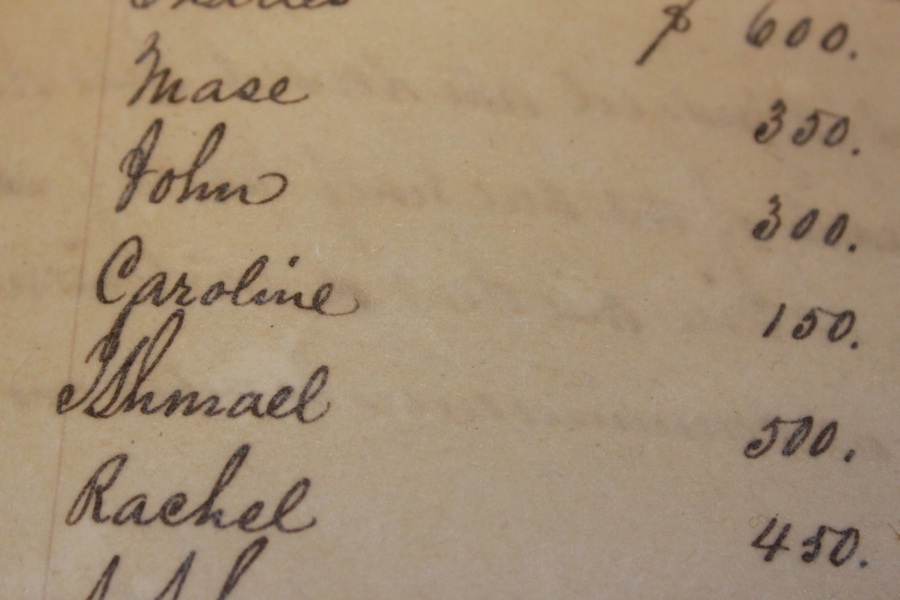 Charles $ 600.
Mase 350.
John 300.
Caroline 150.
Ishmael 500.
Rachel 450.